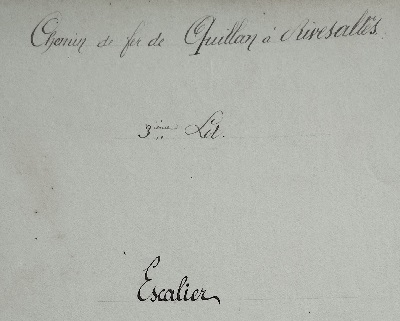 Chemin de fer de Quillan à Rivesaltes.
3ième Lot.
Escalier